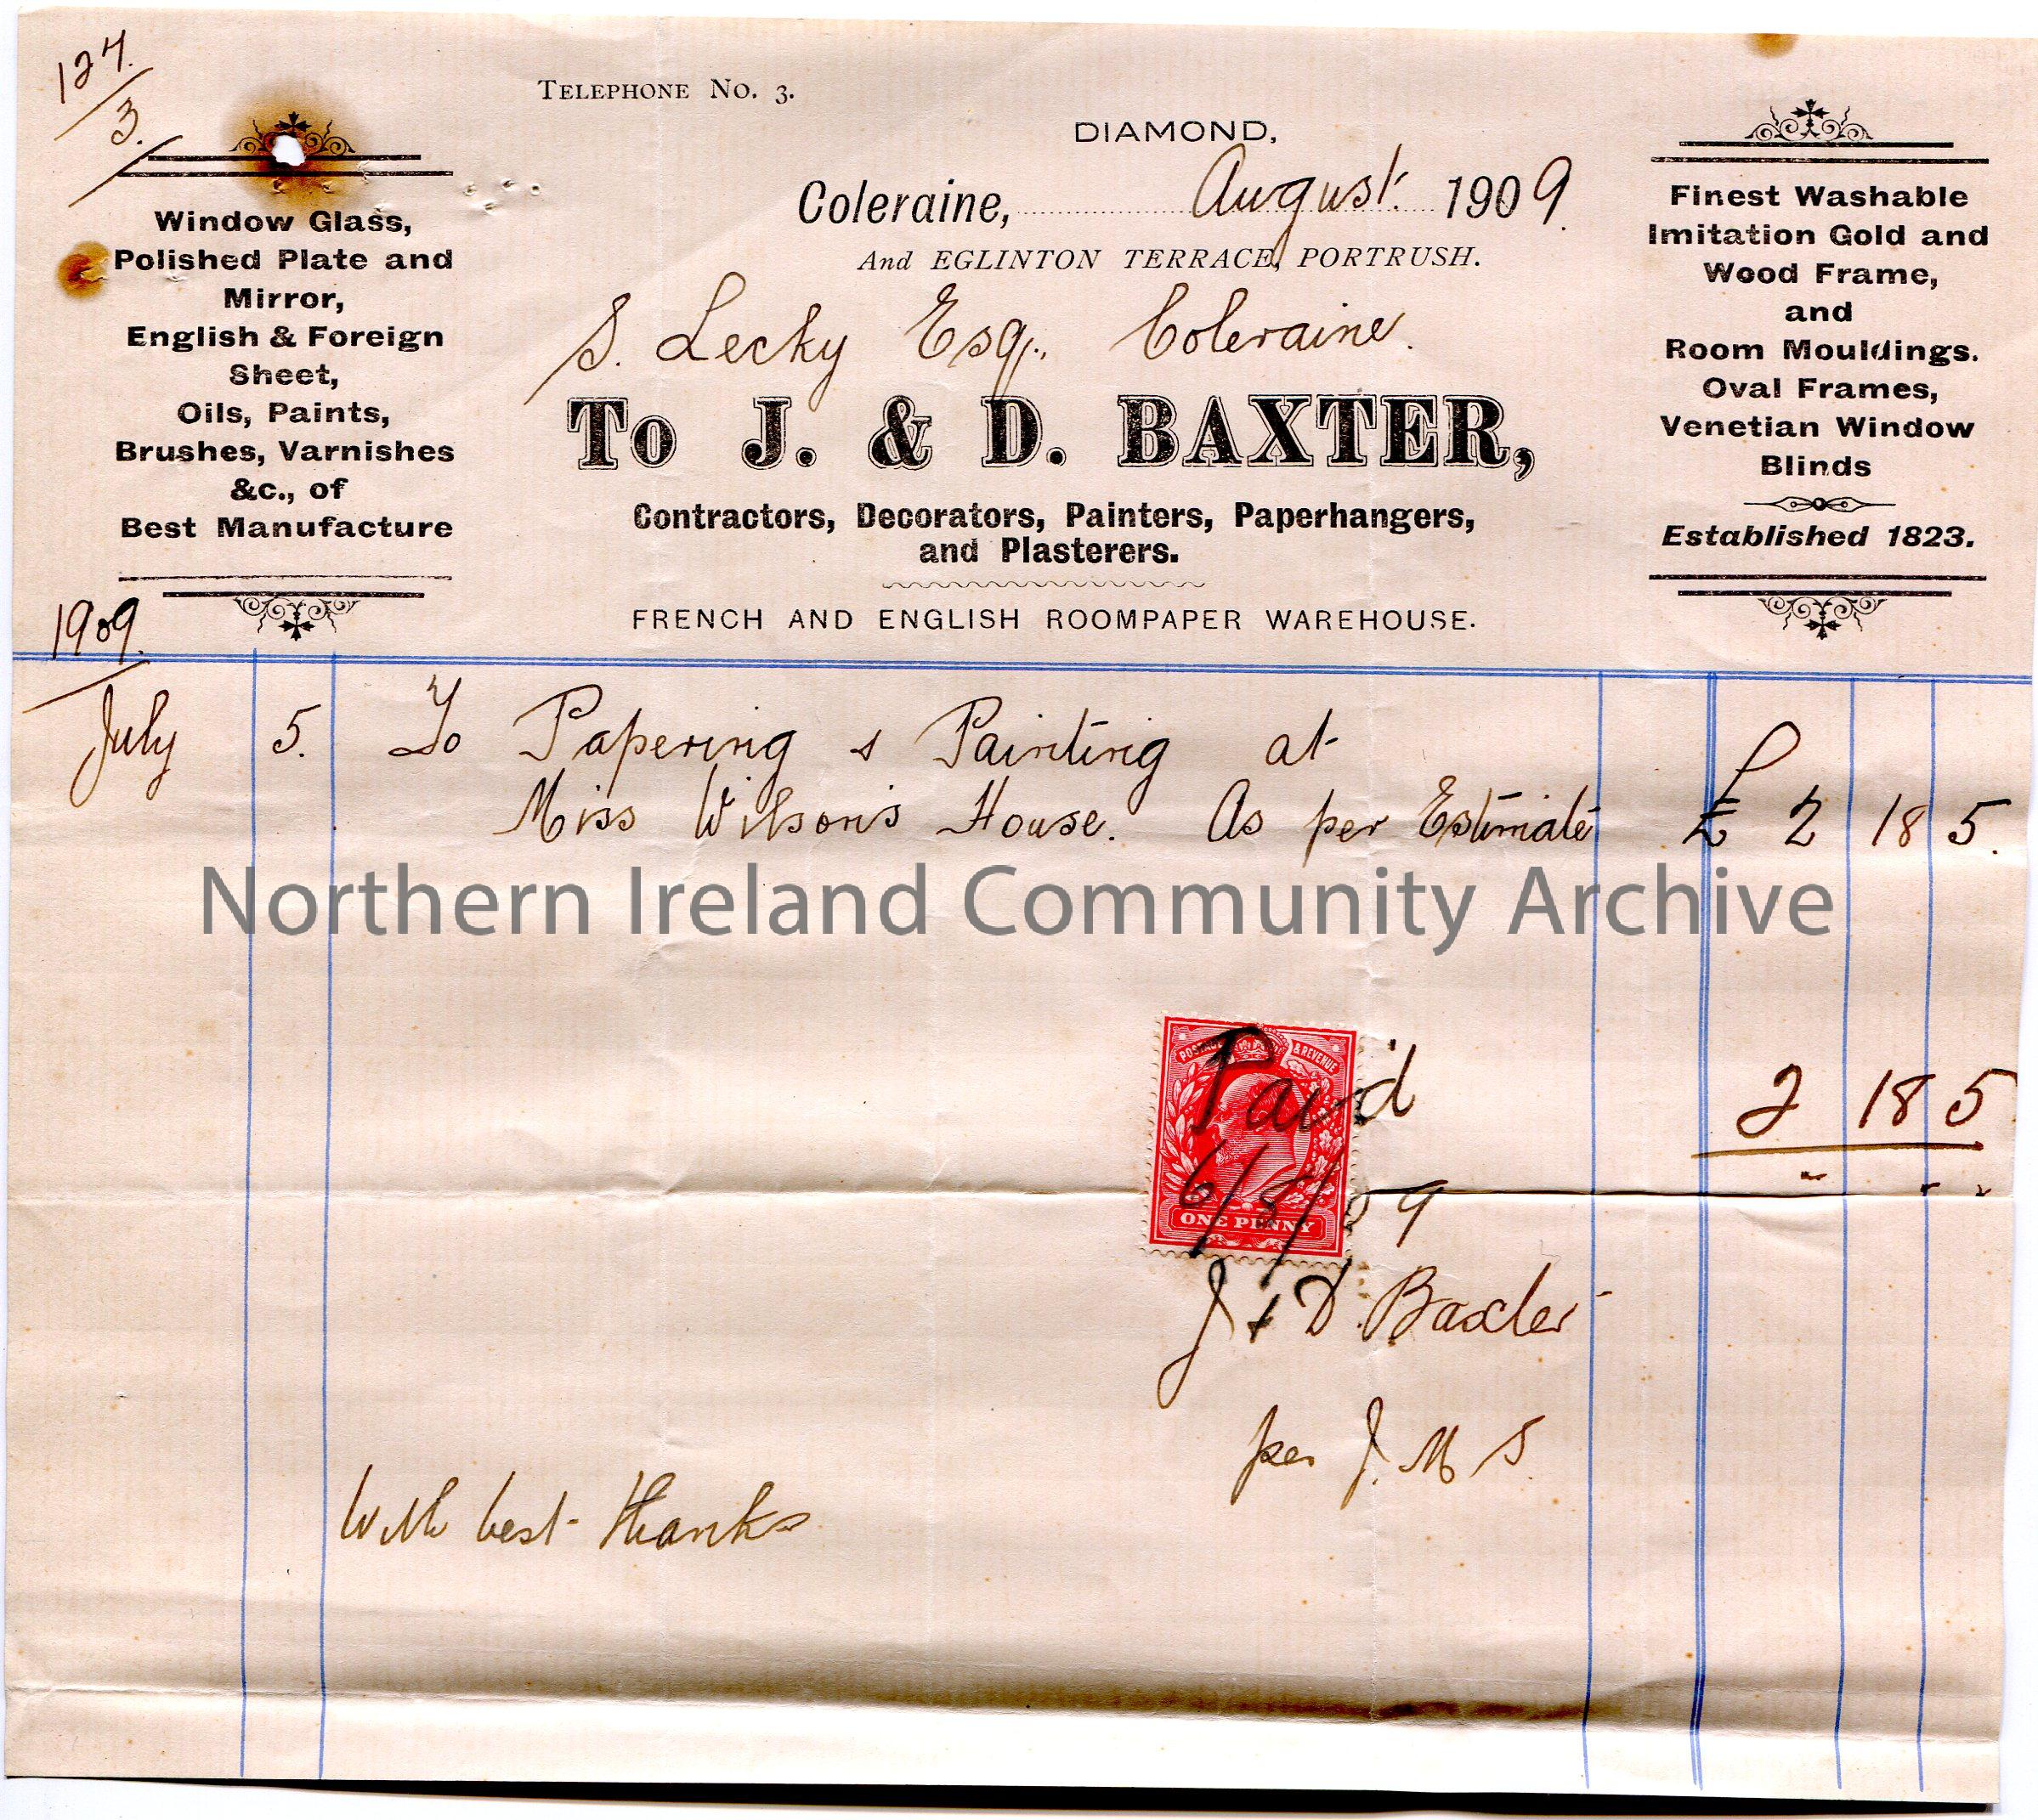 124.
3.
TELEPHONE NO. 3.
DIAMOND,
Coleraine, August. 1909.
And EGLINTON TERRACE, PORTRUSH.
S. Lecky Esq., Coleraine.
To J. & D. BAXTER,
Contractors, Decorators, Painters, Paperhangers,
and Plasterers.
FRENCH AND ENGLISH ROOMPAPER WAREHOUSE.
Window Glass,
Polished Plate and
Mirror,
English & Foreign
Sheet,
Oils, Paints,
Brushes, Varnishes
&c., of
Best Manufacture
Finest Washable
Imitation Gold and
Wood Frame,
and
Room Mouldings.
Oval Frames,
Venetian Window
Blinds
Established 1823.
1909.
July 5. To Papering & Painting at
Miss Wilson's House. As per Estimate £ 2 18 5.
Northern Ireland Community Archive
POSTAGE & REVENUE
Paid 2 18 5
6/8/09
ONE PENNY
J & D. Baxter
per J. M S.
With best thanks